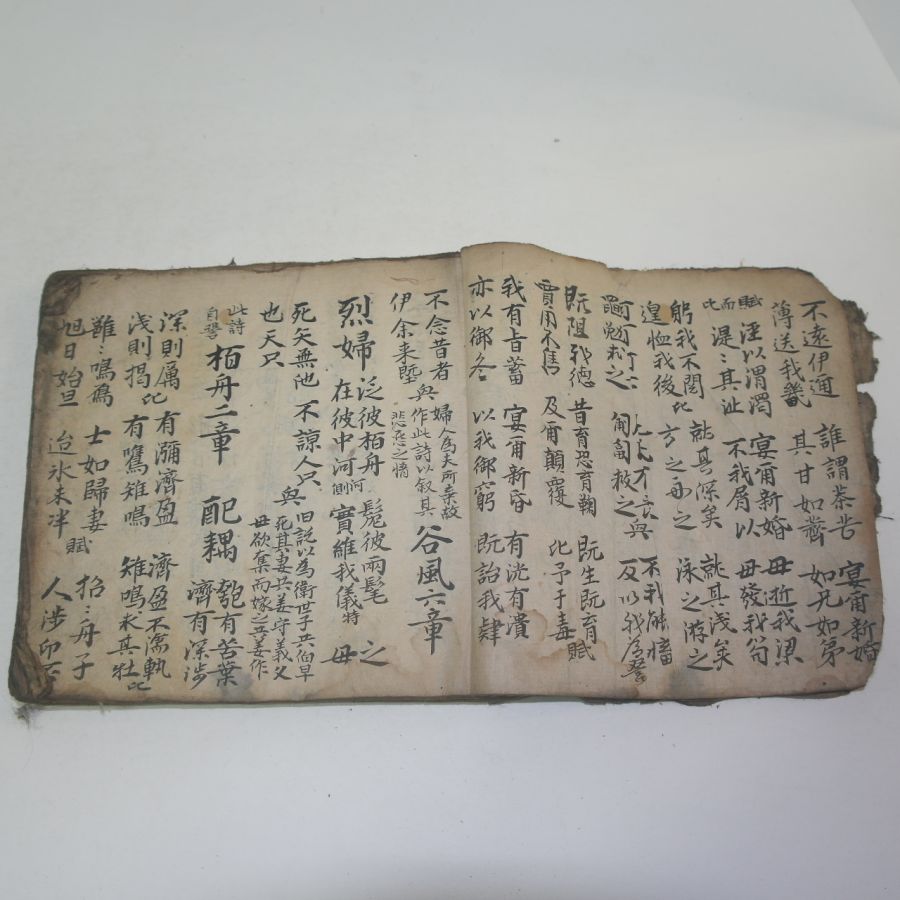 不遠伊迩 誰謂荼苦 宴爾新婚
薄送我畿 其甘如薺 如兄如第
賦而比 涇以渭濁 宴爾新婚 毋逝我梁
湜〻其沚 不我屑以 毋發我笱
躬我不閱 比 就其深矣 就其浅矣
遑恤我後 方之舟之 泳之游之
匍匐救之 與 不我能慉
黽勉求之 反以我為讐
既阻我徳 昔育恐育鞫 既生既育 賦
賈用不售 及爾顛覆 比予于毒
我有旨蓄 宴爾新昏 有洸有潰
亦以御冬 以我御窮 既詒我肄
不念昔者 與 婦人為夫所棄故
伊余来塈 作此詩以叙其
悲怨之情
谷風六章
烈婦
泛彼栢舟 河 髧彼兩髦 之
在彼中河 側 實維我儀 特 毋
死矢無他 不諒人只 與 旧説以為衛世子共伯早
也天只 死其妻共姜守義父
母欲奪而嫁之共姜作
此詩
自誓
栢舟二章 配耦
匏有苦葉
濟有深涉
深則厲 比 有瀰濟盈 濟盈不濡軌
浅則揭 有鷕雉鳴 雉鳴求其牡 比
雝〻鳴鴈 士如歸妻 賦 招〻舟子
旭日始旦 迨氷未泮 人涉卬否